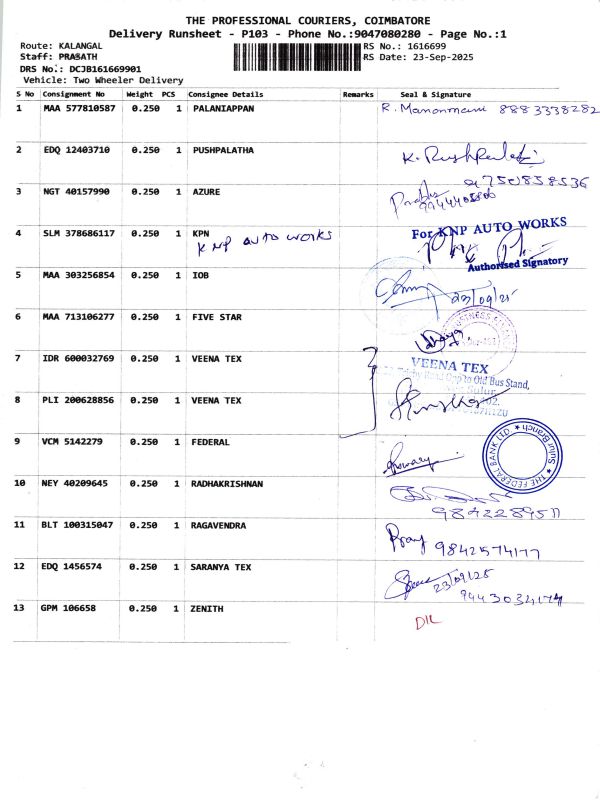 THE PROFESSIONAL COURIERS, COIMBATORE
Delivery Runsheet - P103 - Phone No.:9047080280 - Page No.:1
Route: KALANGAL RS No.: 1616699
Staff: PRASATH RS Date: 23-Sep-2025
DRS No.: DCJB161669901
Vehicle: Two Wheeler Delivery
S No Consignment No Weight PCS Consignee Details Remarks Seal & Signature
1 MAA 577810587 0.250 1 PALANIAPPAN R. Manonmani 8883338282
2 EDQ 12403710 0.250 1 PUSHPALATHA K. Pushpalatha
9750858536
3 NGT 40157990 0.250 1 AZURE
4 SLM 378686117 0.250 1 KPN For KNP AUTO WORKS
KNP AUTO WORKS
Authorised Signatory
5 MAA 303256854 0.250 1 IOB
23/09/25
6 MAA 713106277 0.250 1 FIVE STAR
7 IDR 600032769 0.250 1 VEENA TEX VEENA TEX
Opp to Old Bus Stand,
8 PLI 200628856 0.250 1 VEENA TEX
9 VCM 5142279 0.250 1 FEDERAL
THE FEDERAL BANK LTD. * Sulur Branch *
10 NEY 40209645 0.250 1 RADHAKRISHNAN
9842289511
11 BLT 100315047 0.250 1 RAGAVENDRA
9842574177
12 EDQ 1456574 0.250 1 SARANYA TEX 23/09/25
9443034174
13 GPM 106658 0.250 1 ZENITH
DIL